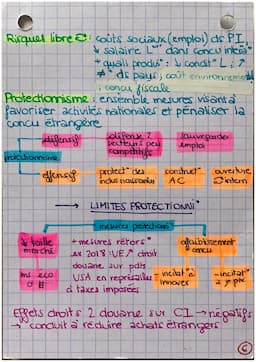 Risques libre É : coûts sociaux (emploi) ds PI,
↓ salaire L™ dans concu intern°
+ quali produits : ↓ condit° L ; ↗
≠ ds pays ; coût environnement
; concu fiscale
Protectionnisme : ensemble mesures visant à
favoriser activités nationales et pénaliser la
concu étrangère
défensif
défense 2 secteurs peu compétitifs
sauvegarder emploi
protectionnisme
offensif
protect° des indus naissantes
construct° AC
ouverture intern
→ LIMITES PROTECTIONNI™
mesures protection
↓ taille marché
+ mesures rétors°
affaiblissement concu
ex 2018 UE ↗ droit
douane sur pdts
USA en représailles
à taxes imposées
- incitat° à innover
- incitat° à ↗ pté
Effets droits 2 douane sur CI → négatifs
→ conduit à réduire achats étrangers